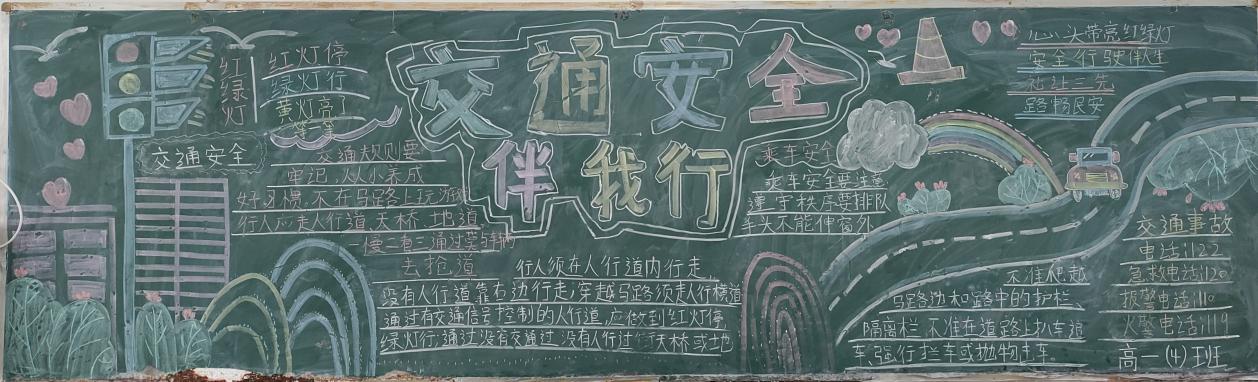 交通安全
伴我行
红绿灯
红灯停
绿灯行
黄灯亮了
等一等
交通安全
交通规则要
牢记,从小养成
好习惯,不在马路上玩游戏
行人应走人行道、天桥、地道
一慢二看三通过莫与车辆
去抢道
行人须在人行道内行走
没有人行道靠右边行走;穿越马路须走人行横道
通过有交通信号控制的人行道,应做到红灯停
绿灯行;通过没有交通过 没有人行过 天桥或地
乘车安全
乘车安全要注意
遵守秩序要排队
车头不能伸窗外
心头带亮红绿灯
安全行驶伴人生
礼让三先
路畅民安
不准爬越
马路边和路中的护栏、
隔离栏,不准在道路上扒车追
车,强行拦车或抛物击车
交通事故
电话:122
急救电话:120
报警电话:110
火警电话:119
高一(4)班